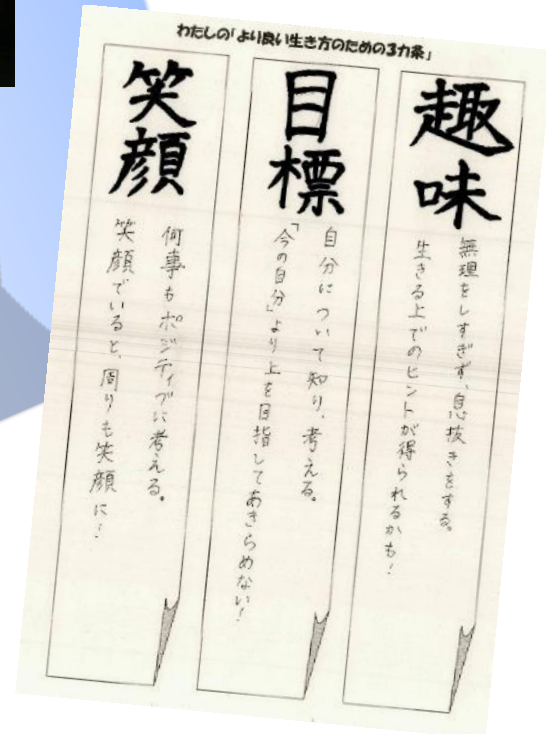 わたしの「より良い生き方のための3カ条」
趣味
無理をしすぎず、息抜きをする。
生きる上でのヒントが得られるかも!
目標
自分について知り、考える。
「今の自分」より上を目指してあきらめない!
笑顔
何事もポジティブに考える。
笑顔でいると、周りも笑顔に!